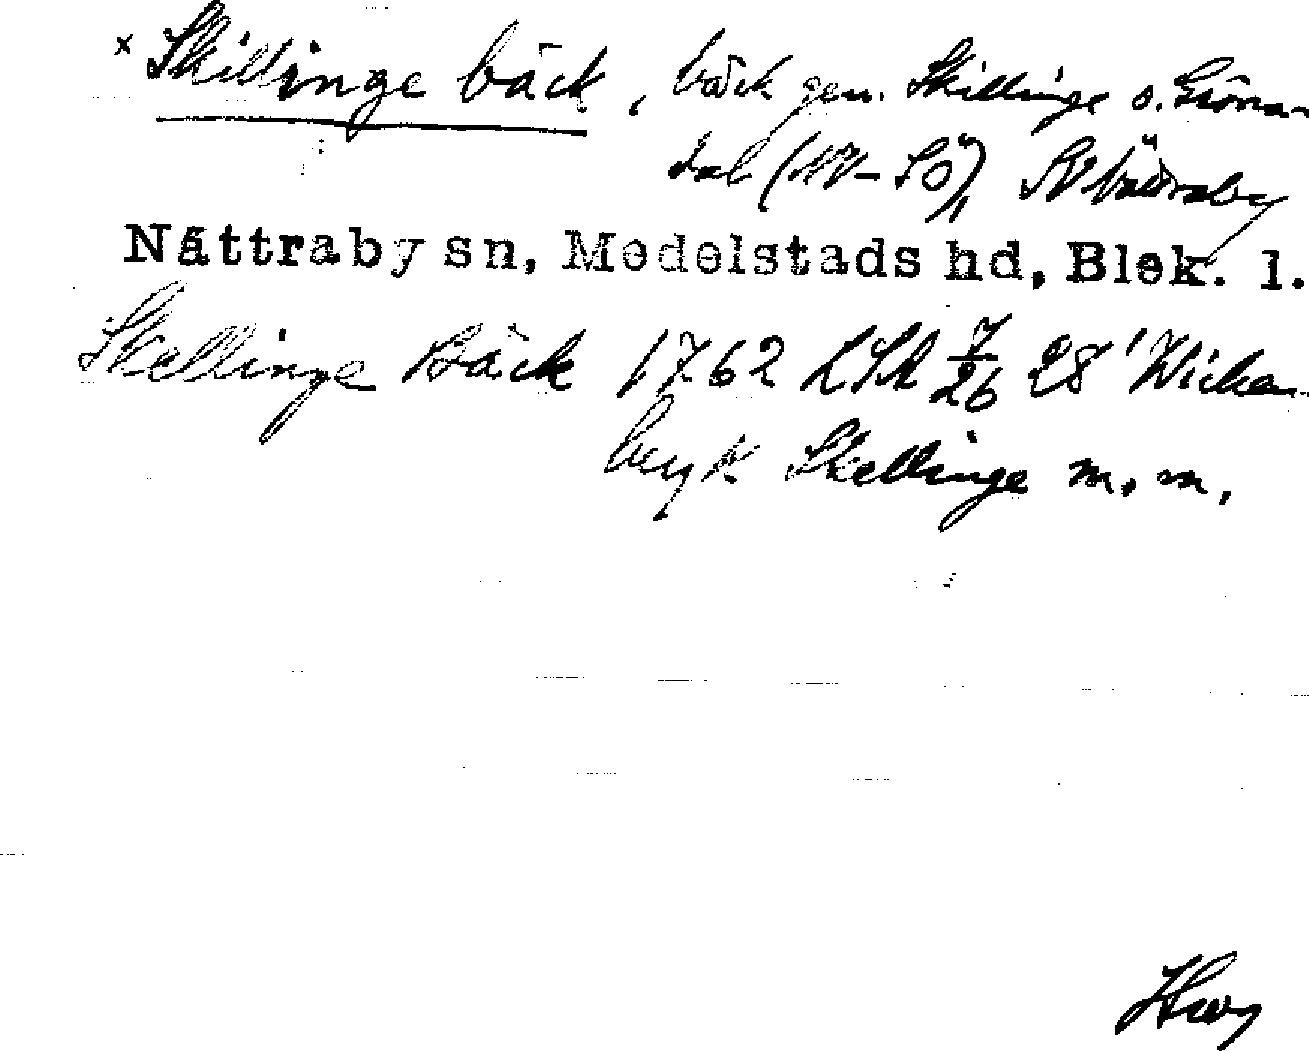 × Skillinge bäck, bäck gen. Skillinge o. Gröna-
dal (NV-SÖ), Nättraby
Nättraby sn, Medelstads hd, Blek. l.
Skellinge Bäck 1762 LSA 7/26 28 'Wicken-
berg Skellinge m.m.